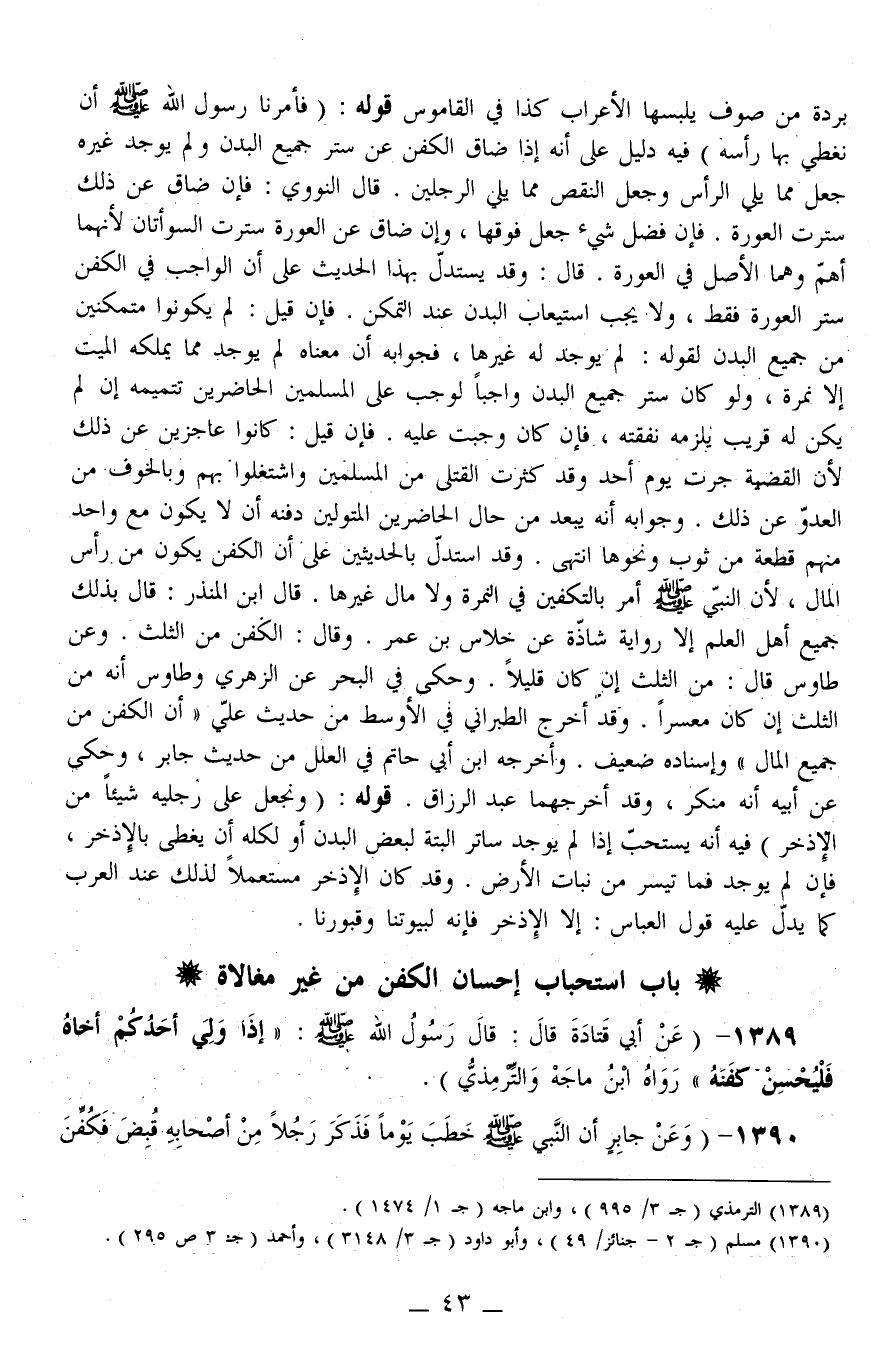 بردة من صوف يلبسها الأعراب كذا في القاموس قوله : ( فأمرنا رسول الله ﷺ أن
نغطي بها رأسه ) فيه دليل على أنه إذا ضاق الكفن عن ستر جميع البدن ولم يوجد غيره
جعل مما يلي الرأس وجعل النقص مما يلي الرجلين . قال النووي : فإن ضاق عن ذلك
سترت العورة . فإن فضل شيء جعل فوقها ، وإن ضاق عن العورة سترت السوأتان لأنهما
أهمّ وهما الأصل في العورة . قال : وقد يستدلّ بهذا الحديث على أن الواجب في الكفن
ستر العورة فقط ، ولا يجب استيعاب البدن عند التمكن . فإن قيل : لم يكونوا متمكنين
من جميع البدن لقوله : لم يوجد له غيرها ، فجوابه أن معناه لم يوجد مما يملكه الميت
إلا نمرة ، ولو كان ستر جميع البدن واجباً لوجب على المسلمين الحاضرين تتميمه إن لم
يكن له قريب يلزمه نفقته ، فإن كان وجبت عليه . فإن قيل : كانوا عاجزين عن ذلك
لأن القضية جرت يوم أحد وقد كثرت القتلى من المسلمين واشتغلوا بهم وبالخوف من
العدوّ عن ذلك . وجوابه أنه يبعد من حال الحاضرين المتولين دفنه أن لا يكون مع واحد
منهم قطعة من ثوب ونحوها انتهى . وقد استدلّ بالحديثين على أن الكفن يكون من رأس
المال ، لأن النبيّ ﷺ أمر بالتكفين في النمرة ولا مال غيرها . قال ابن المنذر : قال بذلك
جميع أهل العلم إلا رواية شاذّة عن خلاس بن عمر . وقال : الكفن من الثلث . وعن
طاوس قال : من الثلث إن كان قليلاً . وحكى في البحر عن الزهري وطاوس أنه من
الثلث إن كان معسراً . وقد أخرج الطبراني في الأوسط من حديث عليّ « أن الكفن من
جميع المال » وإسناده ضعيف . وأخرجه ابن أبي حاتم في العلل من حديث جابر ، وحكي
عن أبيه أنه منكر ، وقد أخرجهما عبد الرزاق . قوله : ( ونجعل على رجليه شيئاً من
الإذخر ) فيه أنه يستحبّ إذا لم يوجد ساتر البتة لبعض البدن أو لكله أن يغطى بالإذخر ،
فإن لم يوجد فما تيسر من نبات الأرض . وقد كان الإذخر مستعملاً لذلك عند العرب
كما يدلّ عليه قول العباس : إلا الإذخر فإنه لبيوتنا وقبورنا .
✸ باب استحباب إحسان الكفن من غير مغالاة ✸
١٣٨٩- ( عَنْ أبي قَتادَةَ قالَ : قالَ رَسُولُ الله ﷺ : « إذَا وَلِيَ أحَدُكُمْ أخاهُ
فَلْيُحْسِنْ كَفَنَهُ » رَوَاهُ ابْنُ ماجَهْ وَالتِّرْمِذيُّ ) .
١٣٩٠- ( وَعَنْ جابِرٍ أن النَّبي ﷺ خَطَبَ يَوْماً فَذَكَرَ رَجُلاً مِنْ أصْحابِهِ قُبِضَ فَكُفِّنَ
(١٣٨٩) الترمذي ( جـ ٣/ ٩٩٥ ) ، وابن ماجه ( جـ ١/ ١٤٧٤ ) .
(١٣٩٠) مسلم ( جـ ٢ – جنائز/ ٤٩ ) ، وأبو داود ( جـ ٣/ ٣١٤٨ ) ، وأحمد ( جـ ٣ ص ٢٩٥ ) .
— ٤٣ —